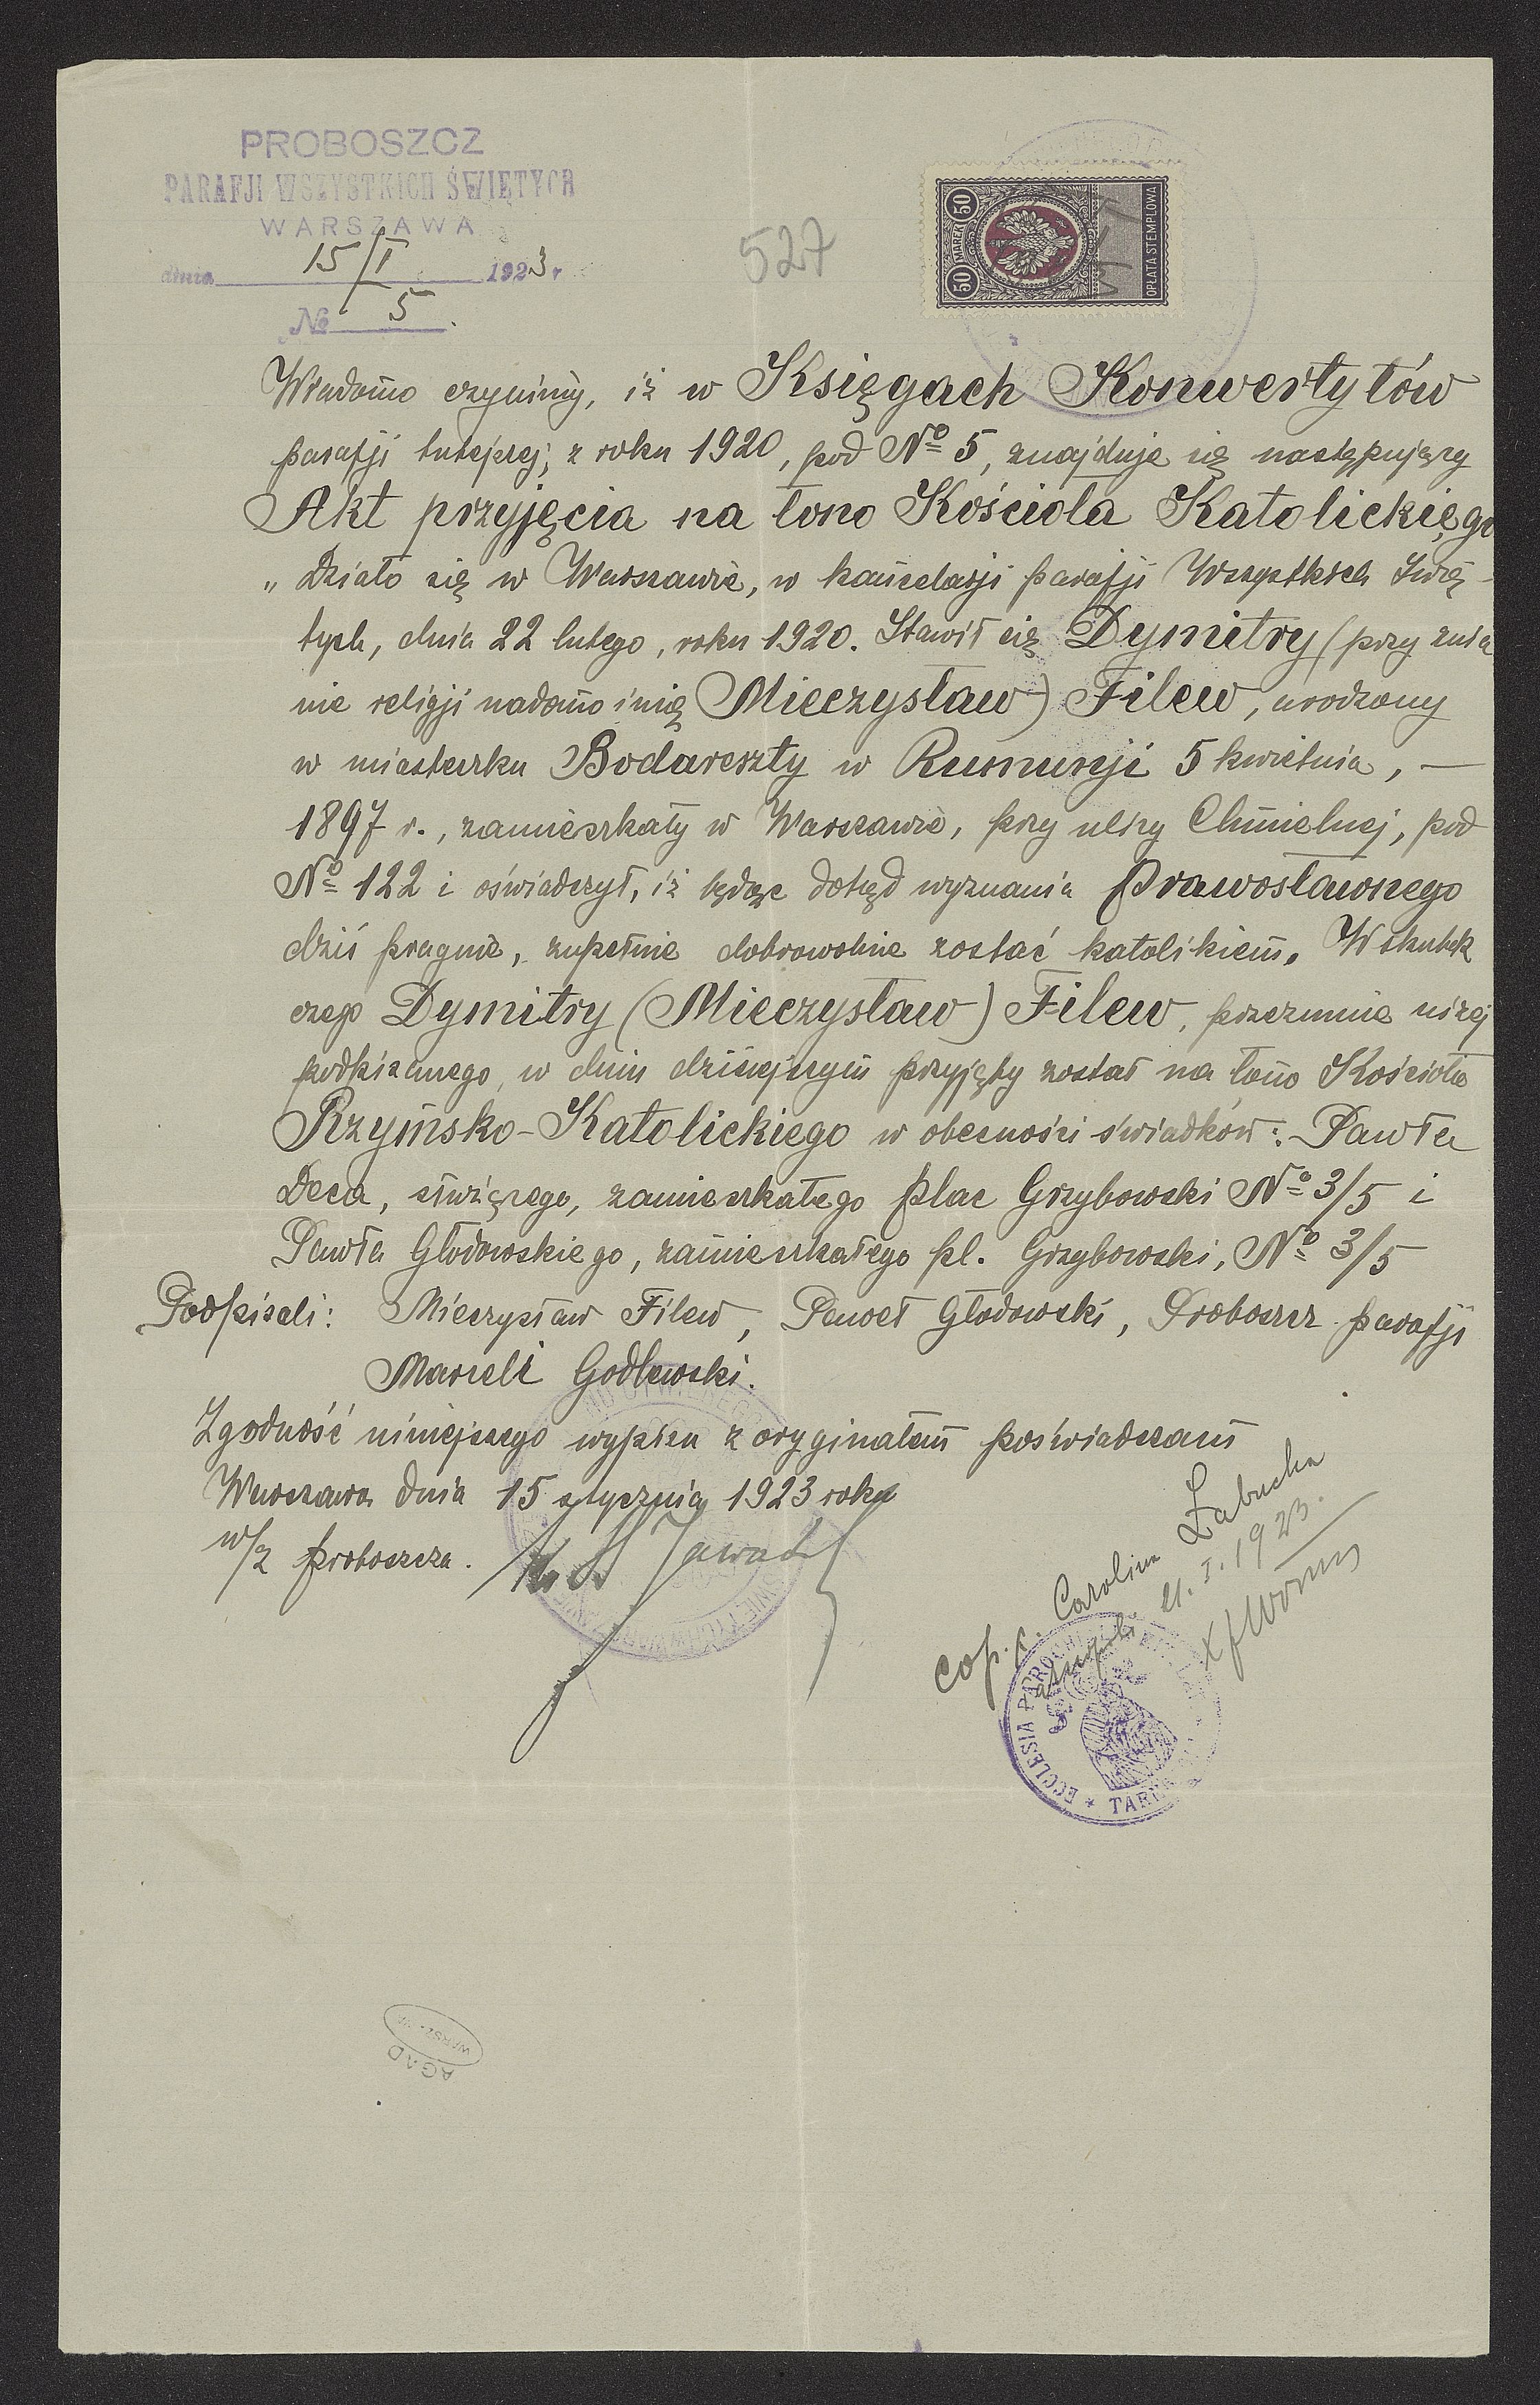 PROBOSZCZ
PARAFJI WSZYSTKICH ŚWIĘTYCH
WARSZAWA
dnia 15/I 1923 r
№ 5.
527
50 MAREK 50
OPŁATA STEMPLOWA
Wiadomo czynimy, iż w Księgach Konwertytów
parafji tutejszej, z roku 1920, pod № 5, znajduje się następujący
Akt przyjęcia na łono Kościoła Katolickiego
„Działo się w Warszawie, w kancelarji parafji Wszystkich Świę-
tych, dnia 22 lutego, roku 1920. Stawił się Dymitry (przy zmia
nie religji nadano imię Mieczysław) Filew, urodzony
w miasteczku Bodareszty w Rumunji 5 kwietnia, —
1897 r., zamieszkały w Warszawie, przy ulicy Chmielnej, pod
№ 122 i oświadczył, iż będąc dotąd wyznania prawosławnego
dziś pragnie, zupełnie dobrowolnie zostać katolikiem. Wskutek
czego Dymitry (Mieczysław) Filew, przezemnie niżej
podpisanego, w dniu dzisiejszym przyjęty został na łono Kościoła
Rzymsko-Katolickiego w obecności świadków: Pawła
Deca, służącego, zamieszkałego plac Grzybowski № 3/5 i
Pawła Głodowskiego, zamieszkałego pl. Grzybowski, № 3/5
Podpisali: Mieczysław Filew, Paweł Głodowski, Proboszcz parafji
Marceli Godlewski.
Zgodność niniejszego wypisu z oryginałem poświadczam
Warszawa dnia 15 stycznia 1923 roku
w/z proboszcza.
cop. c. Carolina Żabucka
21. I. 1923.
ECCLESIA PAROCHI
AGAD